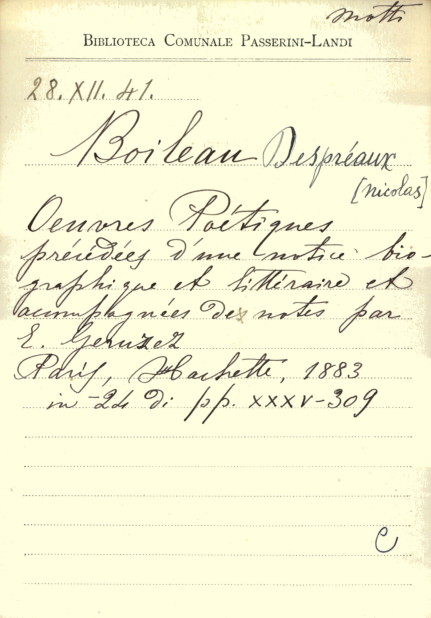 Motti
BIBLIOTECA COMUNALE PASSERINI-LANDI
28.XII.41.
Boileau Despréaux
[Nicolas]
Oeuvres Poétiques
précédées d'une notice bio-
graphique et littéraire et
accompagnées des notes par
E. Geruzez
Paris, Hachette, 1883
in-24 di pp. XXXV-309
C